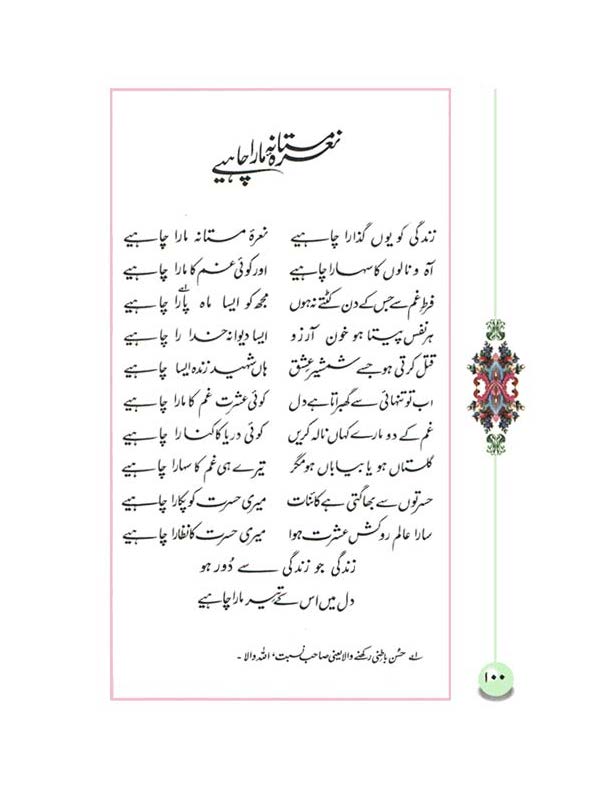 نعرۂ مستانہ مارا چاہیے
زندگی کو یوں گذارا چاہیے نعرۂ مستانہ مارا چاہیے
آہ و نالوں کا سہارا چاہیے اور کوئی غم کا مارا چاہیے
فرطِ غم سے جس کے دن کٹتے نہ ہوں مجھ کو ایسا ماہ پارا چاہیے
ہر نفس پیتا ہو خون آرزو ایسا دیوانہ خدا را چاہیے
قتل کرتی ہو جسے شمشیرِ عشق ہاں شہید زندہ ایسا چاہیے
اب تو تنہائی سے گھبراتا ہے دل کوئی عشرت غم کا مارا چاہیے
غم کے دو مارے کہاں نالہ کریں کوئی دریا کا کنارا چاہیے
گلستاں ہو یا بیاباں ہو مگر تیرے ہی غم کا سہارا چاہیے
حسرتوں سے بھاگتی ہے کائنات میری حسرت کو پکارا چاہیے
سارا عالم روکش عشرت ہوا میری حسرت کا نظارا چاہیے
زندگی جو زندگی سے دُور ہو
دل میں اس کے تیر مارا چاہیے
۱؎ حُسن باطنی رکھنے والا یعنی صاحب نسبت، اللہ والا۔
۱۰۰